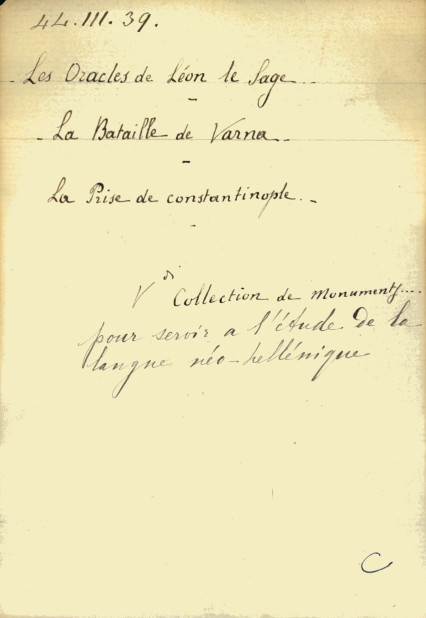 44.III.39.
Les Oracles de Léon le Sage
-
La Bataille de Varna
-
La Prise de constantinople.
-
Vdi Collection de Monuments....
pour servir a l'étude de la
langue néo-hellénique
C